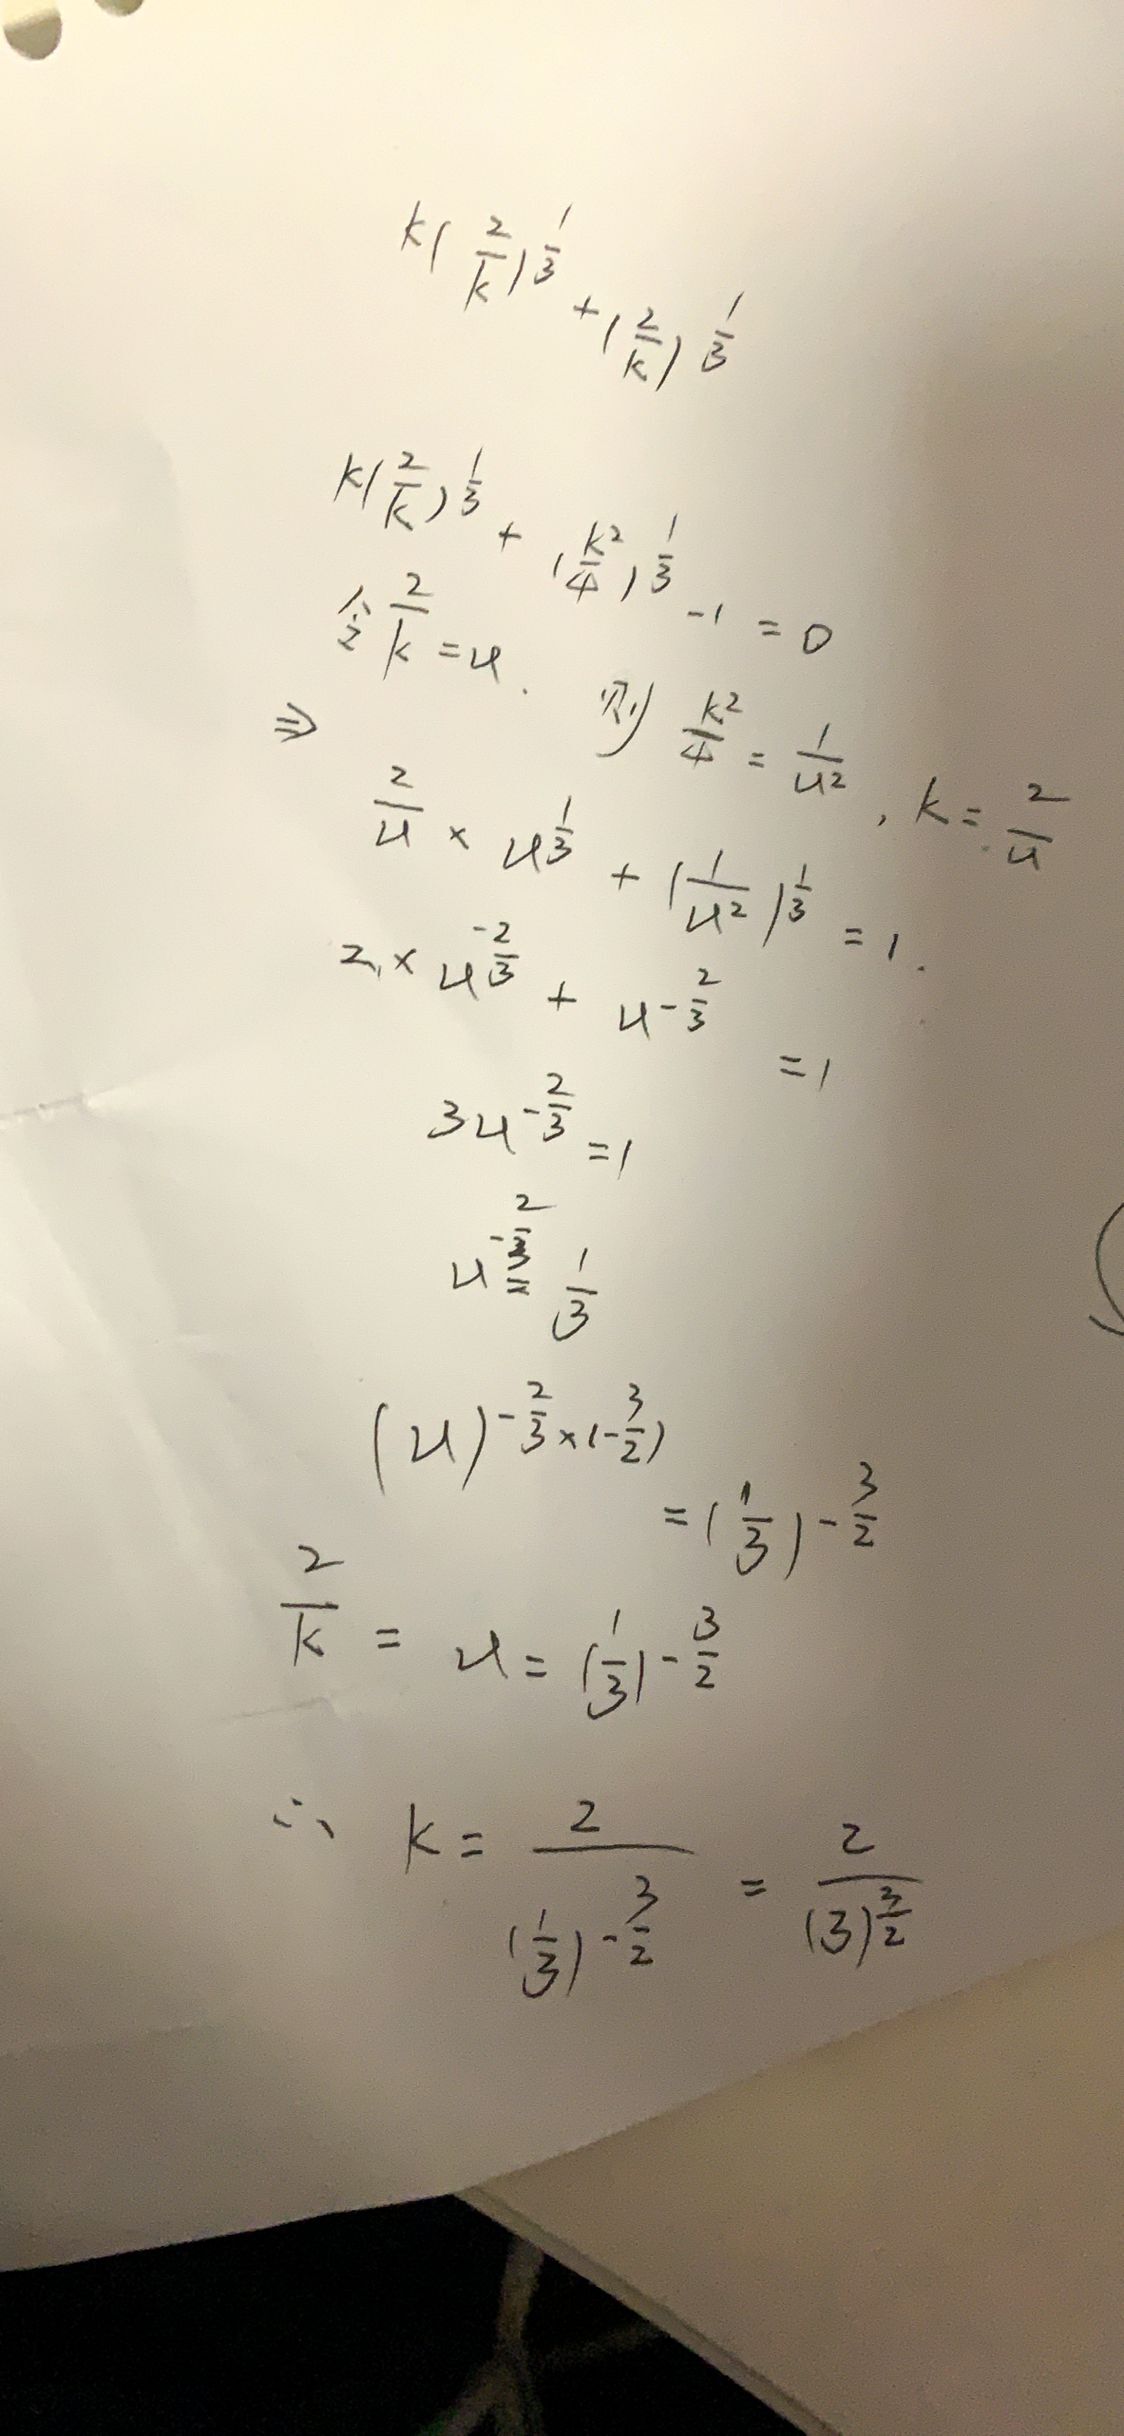 k(2/k)^{1/3} + (2/k)^{1/3}
k(2/k)^{1/3} + (k²/4)^{1/3} - 1 = 0
令 2/k = u. 则 k²/4 = 1/u², k = 2/u
⇒ 2/u × u^{1/3} + (1/u²)^{1/3} = 1.
2 × u^{-2/3} + u^{-2/3} = 1
3u^{-2/3} = 1
u^{-2/3} = 1/3
(u)^{-2/3 × (-3/2)} = (1/3)^{-3/2}
2/k = u = (1/3)^{-3/2}
∴ k = 2/(1/3)^{-3/2} = 2/(3)^{3/2}